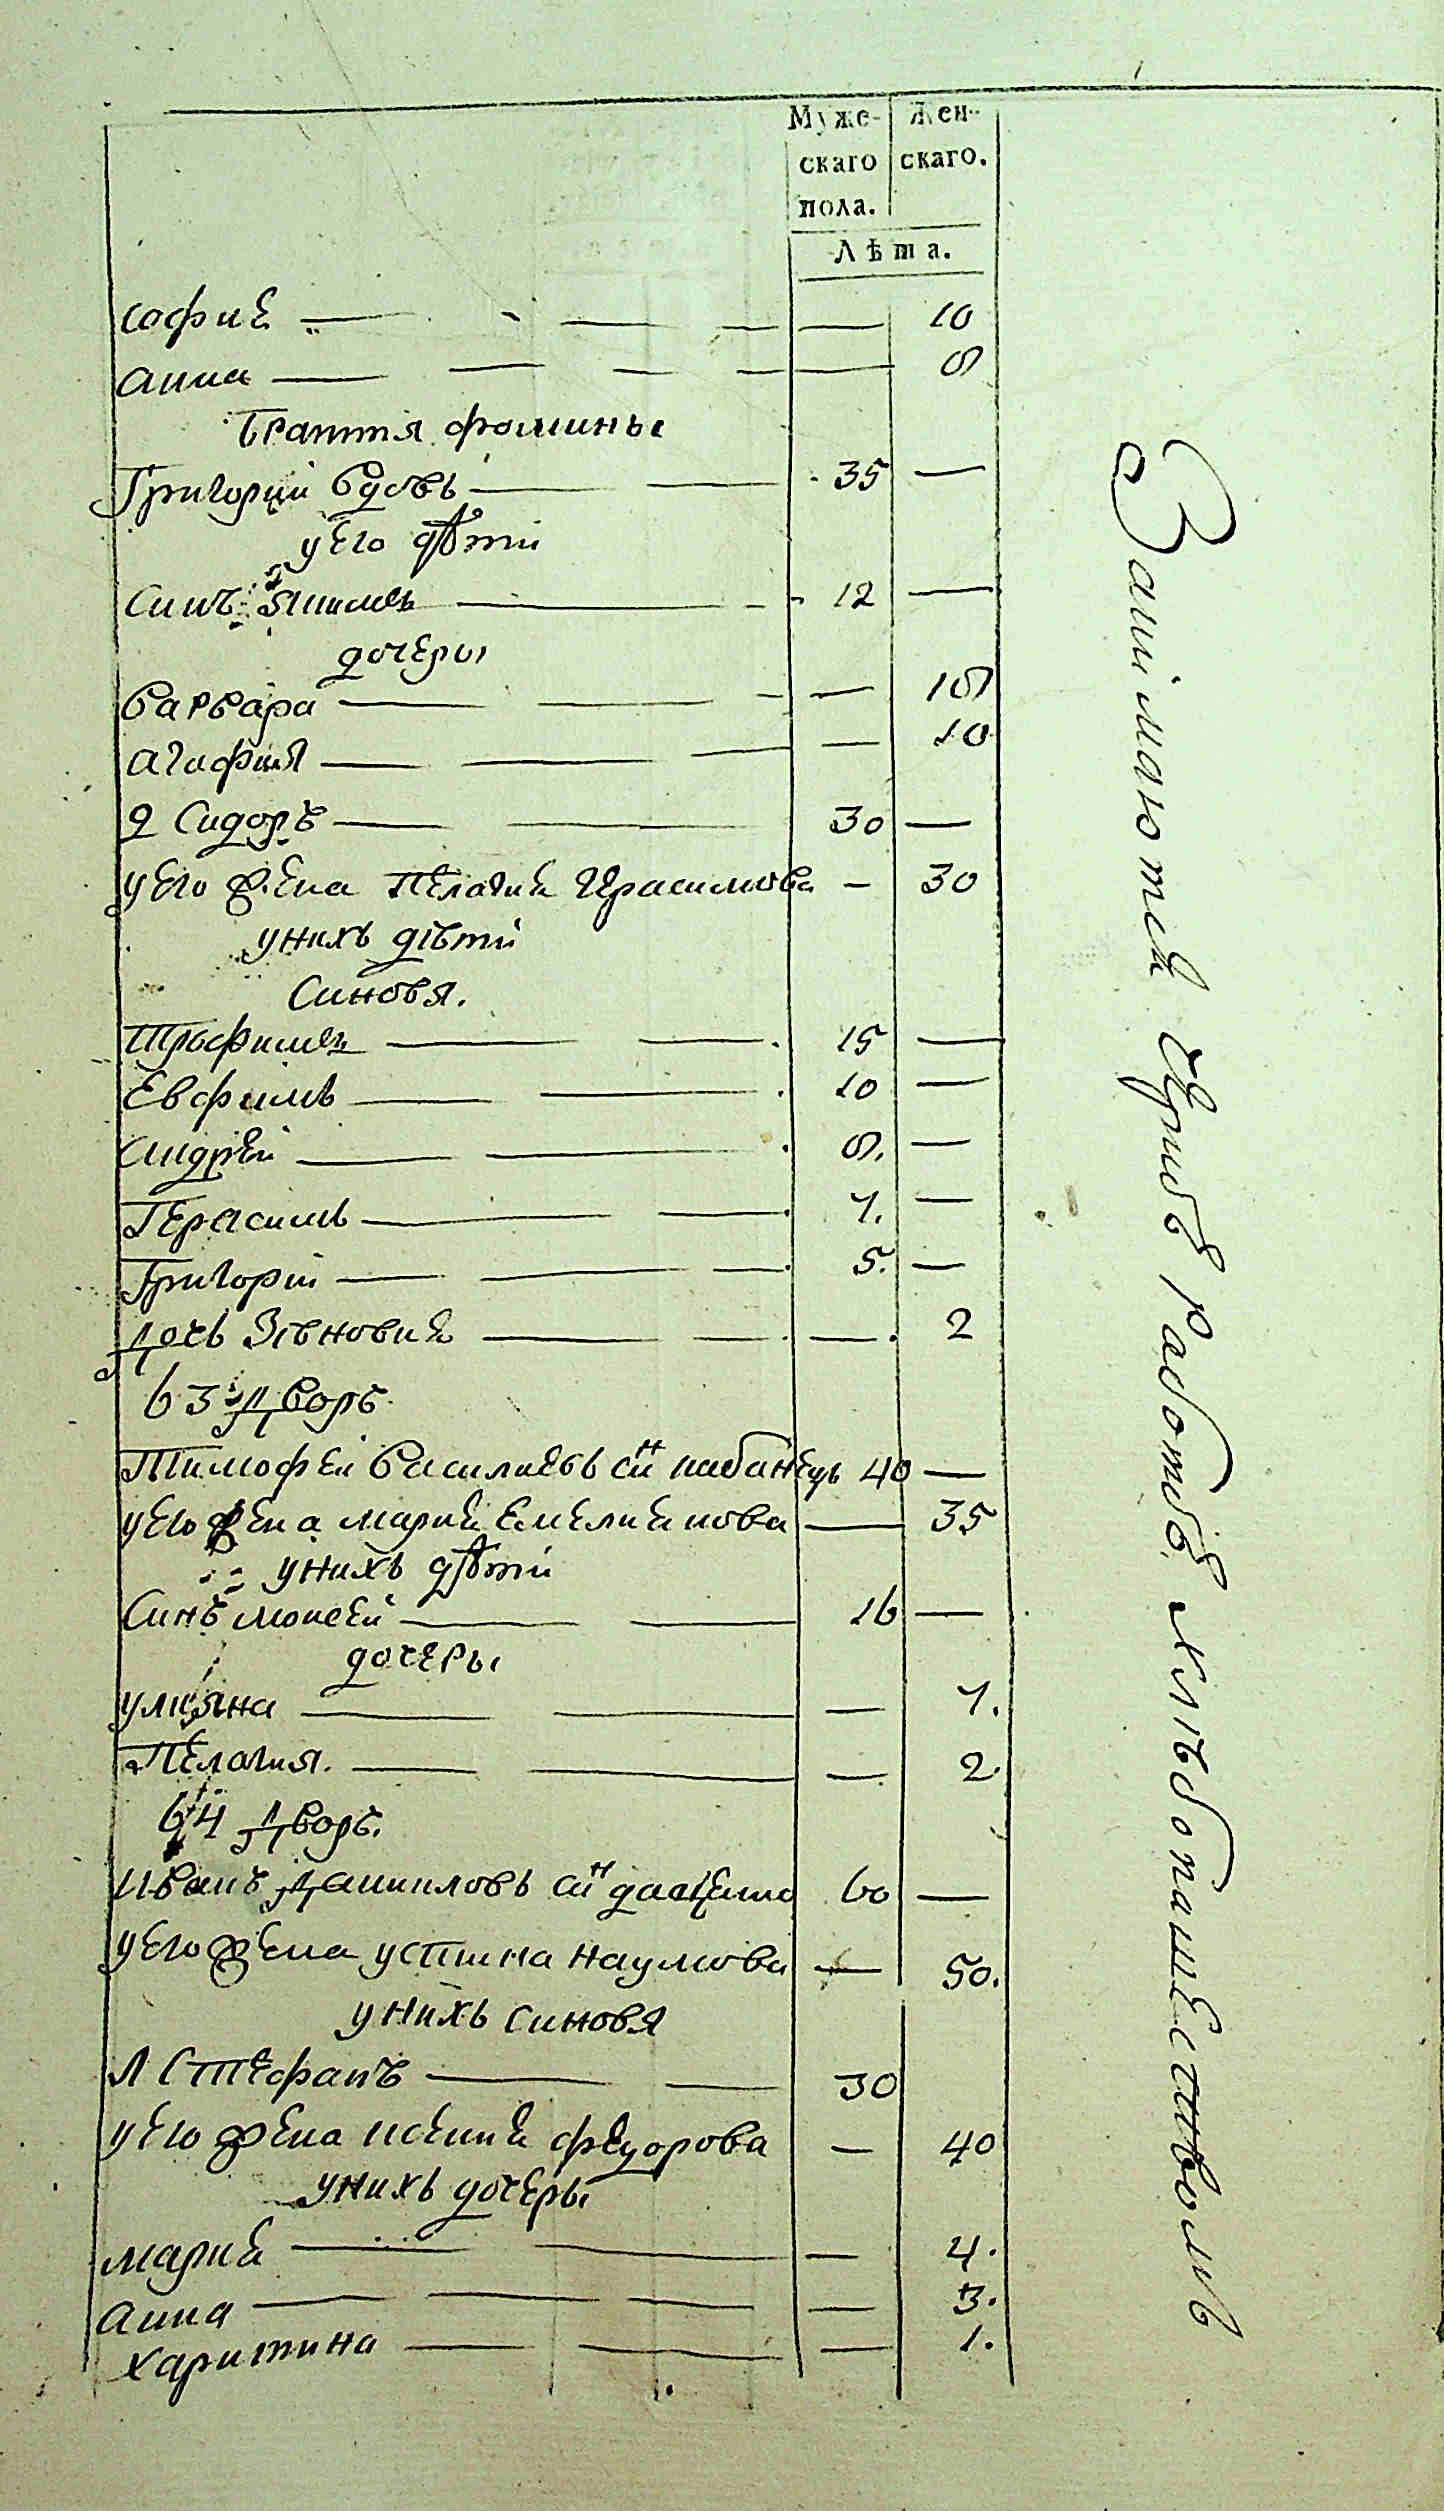 Муже- Жен-
скаго скаго.
пола.
Лѣта.
софиѣ — 10
анна — 8
братия фомины
Григорий вдовъ — 35 —
у его дѣти
Синъ — 12 —
дочеры
варвара — 18
агафия — 10
2 Сидоръ — 30 —
у его жена Пелагиѣ Герасимова — 30
у нихъ дѣти
Синовя.
Трофимъ — 15 —
Евфимъ — 10 —
андрей — 8. —
Герасимъ — 7. —
Григорий — 5. —
Дочь Зѣновиѣ — 2
в 3 Дворъ
Тимофей василиевъ сн кабанецъ 40 —
у его жена мариѣ Емелиѣнова — 35
у нихъ дѣти
Синъ моисей — 16 —
дочеры
улияна — 7.
Пелагия. — 2.
в 4 Дворъ.
иванъ Даниловъ сн 60 —
у его жена устина наумова — 50.
у нихъ синовя
1 Стефанъ — 30
у его жена ксениѣ федорова — 40
у нихъ дочеры
мариѣ — 4.
анна — 3.
харитина — 1.
Занімаютсѣ работою хлѣбопашествомъ